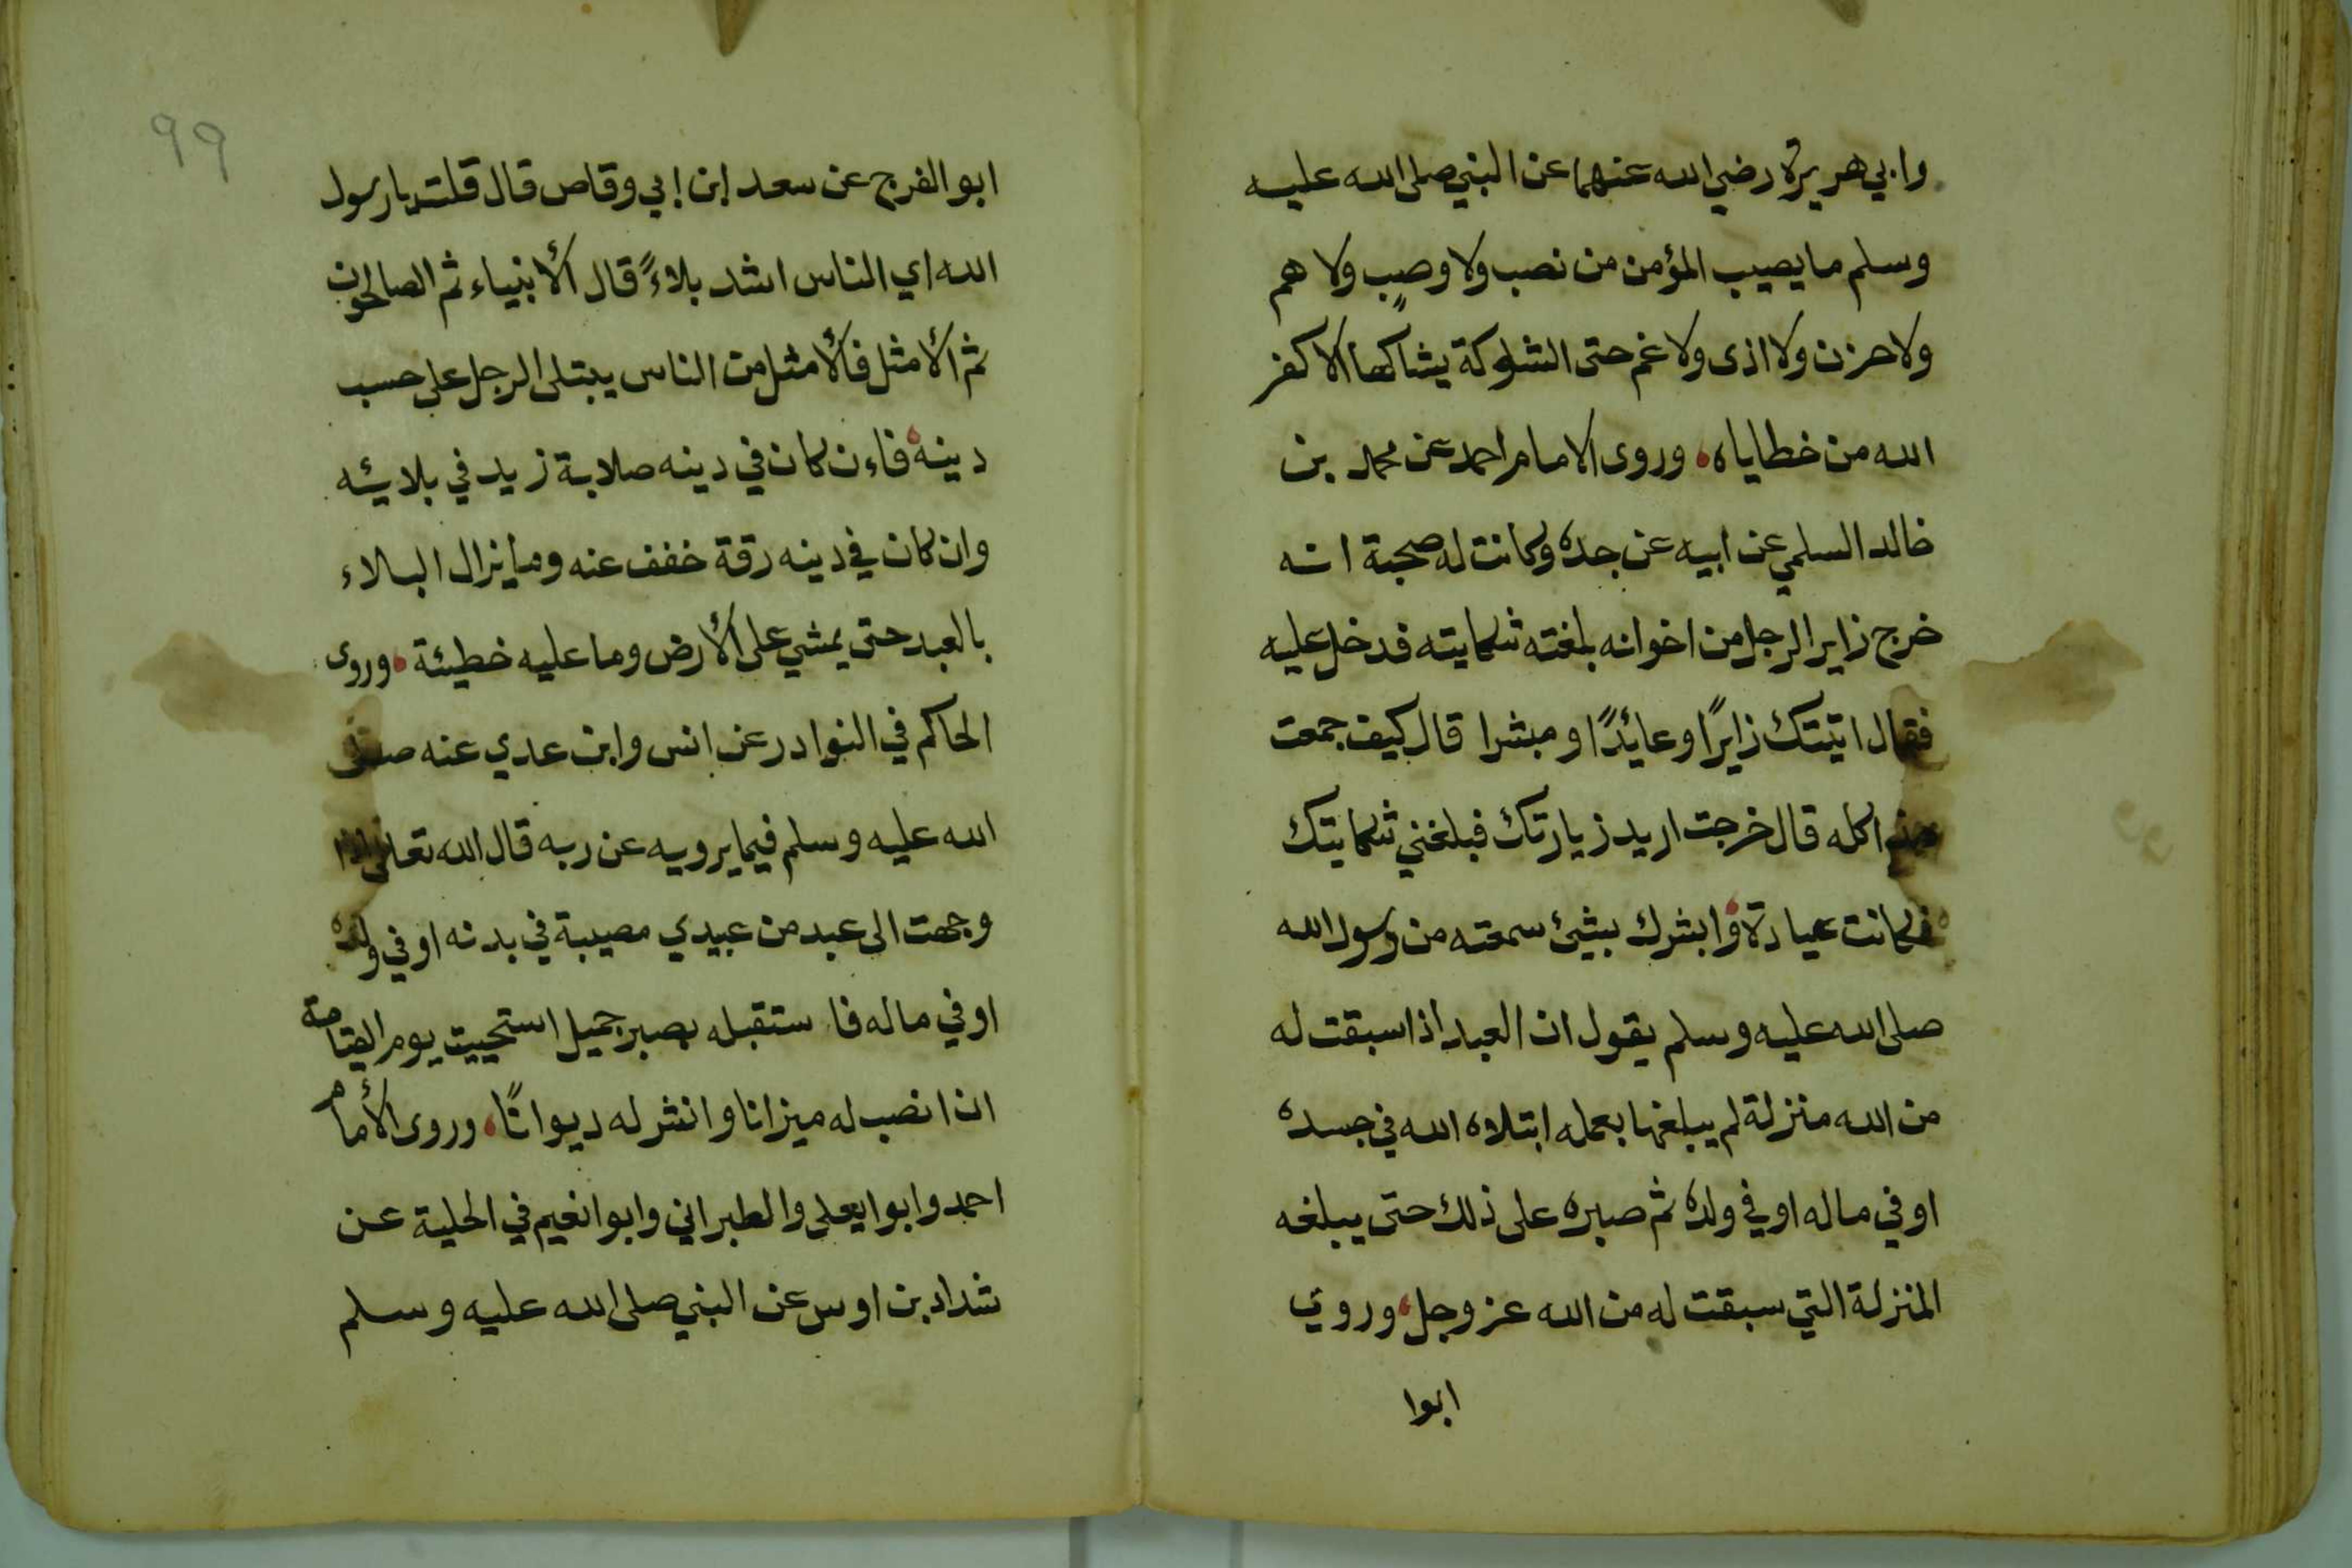 وابي هريرة رضي الله عنهما عن النبي صلى الله عليه
وسلم ما يصيب المؤمن من نصب ولا وصب ولا هم
ولا حزن ولا اذى ولا غم حتى الشوكة يشاكها الا كفر
الله من خطاياه، وروى الامام احمد عن محمد بن
خالد السلمي عن ابيه عن جده وكانت له صحبة انه
خرج زايرا لرجل من اخوانه بلغته شكايته فدخل عليه
فقال اتيتك زايرًا وعائدًا ومبشرا قال كيف جمعت
هذا كله قال خرجت اريد زيارتك فبلغني شكايتك
فكانت عيادة، وابشرك بشئ سمعته من رسول الله
صلى الله عليه وسلم يقول ان العبد اذا سبقت له
من الله منزلة لم يبلغها بعمله ابتلاه الله في جسده
او في ماله او في ولده ثم صبره على ذلك حتى يبلغه
المنزلة التي سبقت له من الله عز وجل، وروي
ابوا
٩٩
ابو الفرج عن سعد إبن إبي وقاص قال قلت يا رسول
الله اي الناس اشد بلاءً قال ألانبياء ثم الصالحون
ثم ألامثل فألامثل من الناس يبتلى الرجل على حسب
دينه، فاءن كان في دينه صلابة زيد في بلائه
وان كان في دينه رقة خفف عنه وما يزال البلاء
بالعبد حتى يمشي على ألارض وما عليه خطيئة، وروى
الحاكم في النوادر عن انس وابن عدي عنه صلى
الله عليه وسلم فيما يرويه عن ربه قال الله تعالى اذا
وجهت الى عبد من عبيدي مصيبة في بدنه او في ولده
او في ماله فاستقبله بصبر جميل استحييت يوم القيامة
ان انصب له ميزانا وانشر له ديوانًا، وروى ألامام
احمد وابوا يعلى والطبراني وابوا نعيم في الحلية عن
شداد بن اوس عن النبي صلى الله عليه وسلم